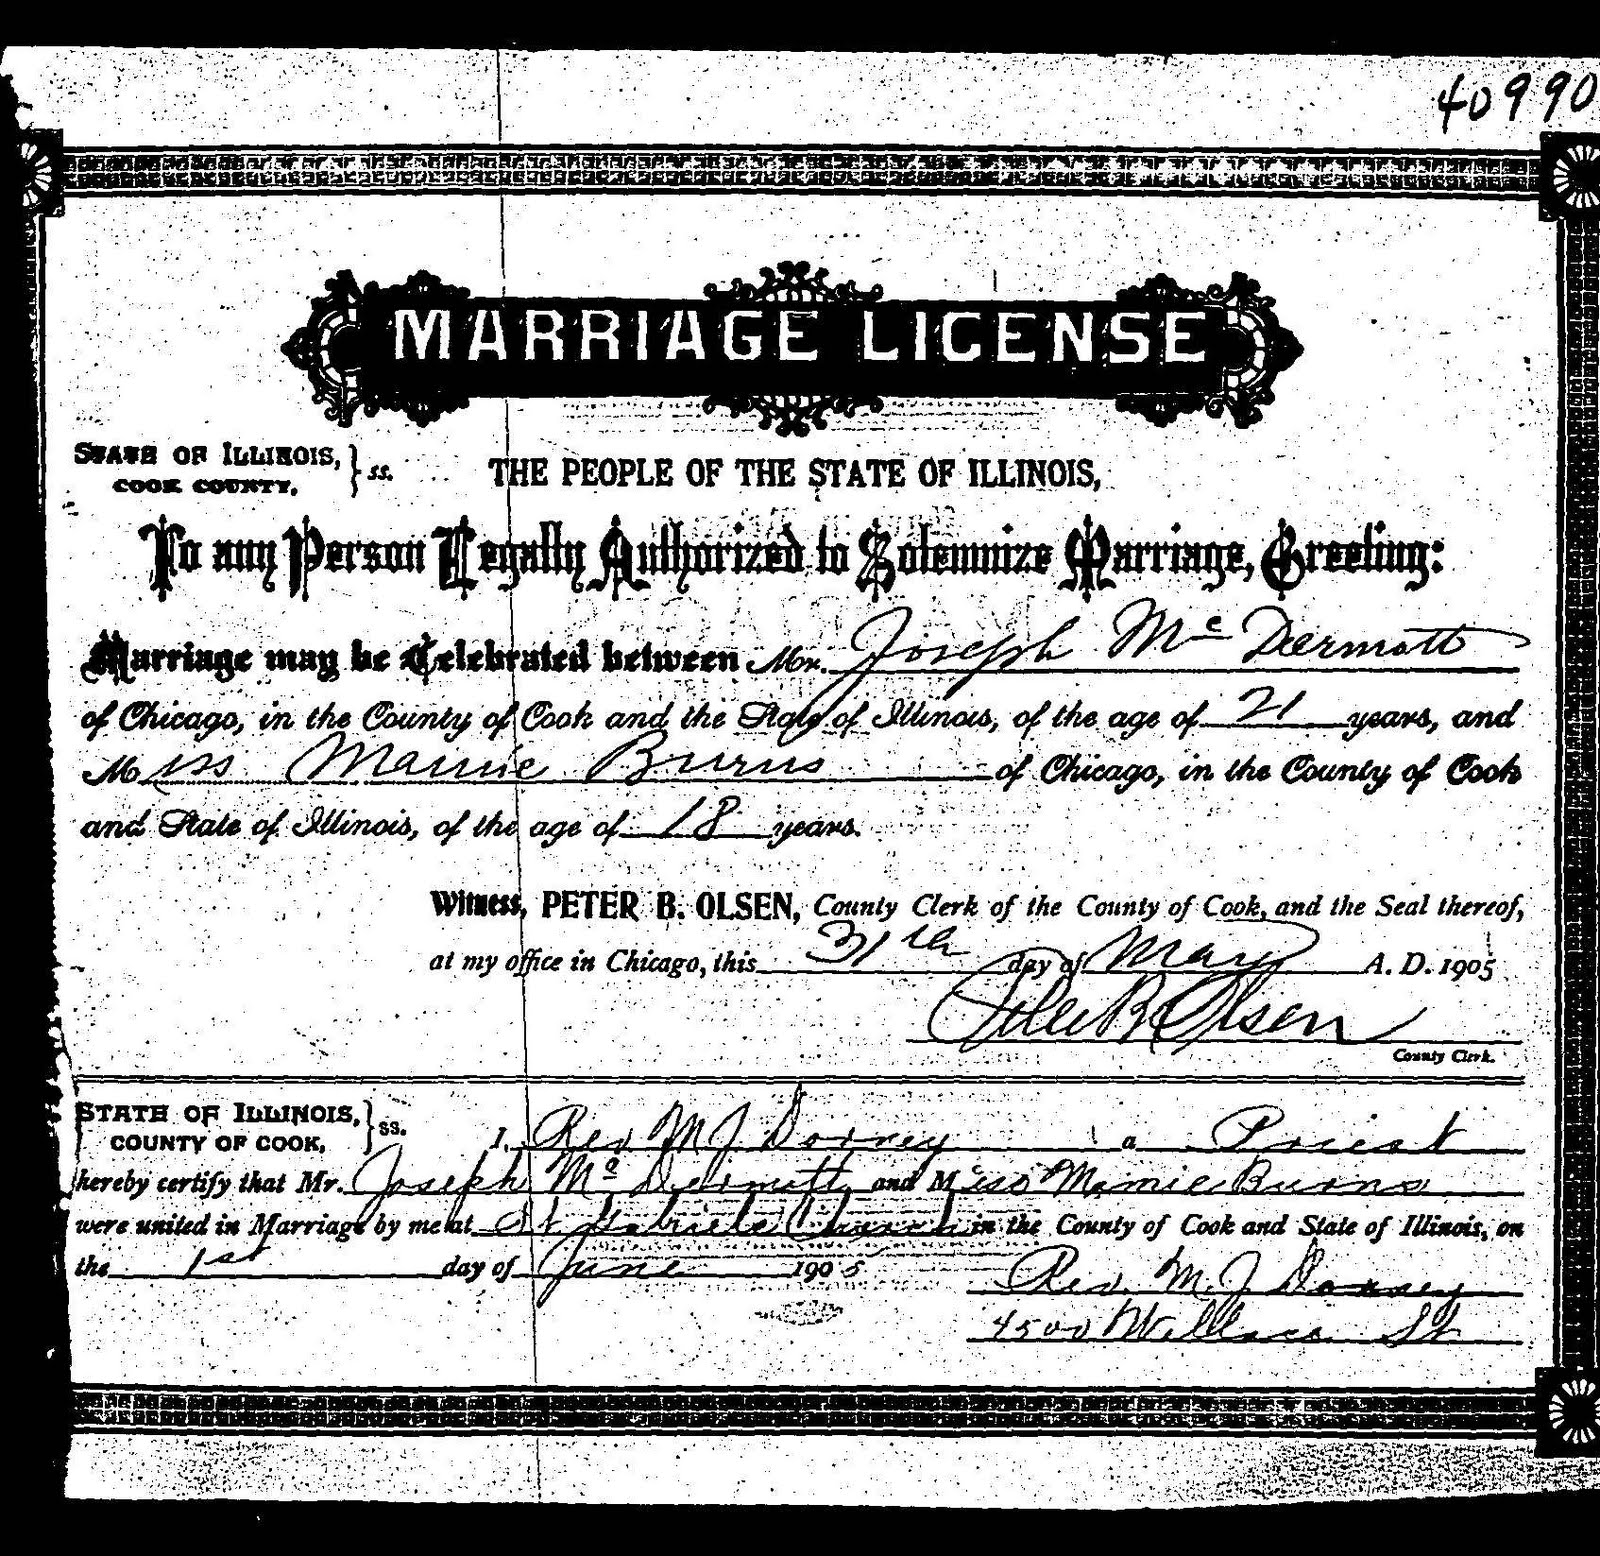 40990
MARRIAGE LICENSE
STATE OF ILLINOIS, } ss. THE PEOPLE OF THE STATE OF ILLINOIS,
COOK COUNTY,
To any Person Legally Authorized to Solemnize Marriage, Greeting:
Marriage may be Celebrated between Mr. Joseph Mc Dermott
of Chicago, in the County of Cook and the State of Illinois, of the age of 21 years, and
Miss Mamie Burns of Chicago, in the County of Cook
and State of Illinois, of the age of 18 years.
Witness, PETER B. OLSEN, County Clerk of the County of Cook, and the Seal thereof,
at my office in Chicago, this 31th day of May A. D. 1905
Peter B Olsen
County Clerk.
STATE OF ILLINOIS, } ss. I, Rev M J Dorney a Priest
COUNTY OF COOK,
hereby certify that Mr. Joseph Mc Dermott and Miss Mamie Burns
were united in Marriage by me at St Gabriels Church in the County of Cook and State of Illinois, on
the 1st day of June 1905
Rev. M. J. Dorney
4500 Wallace St